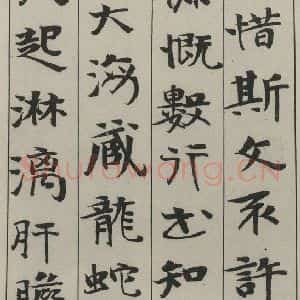 惜斯文不許
慨數行知
大海藏龍蛇
起淋漓肝膽
Shufawang.CN